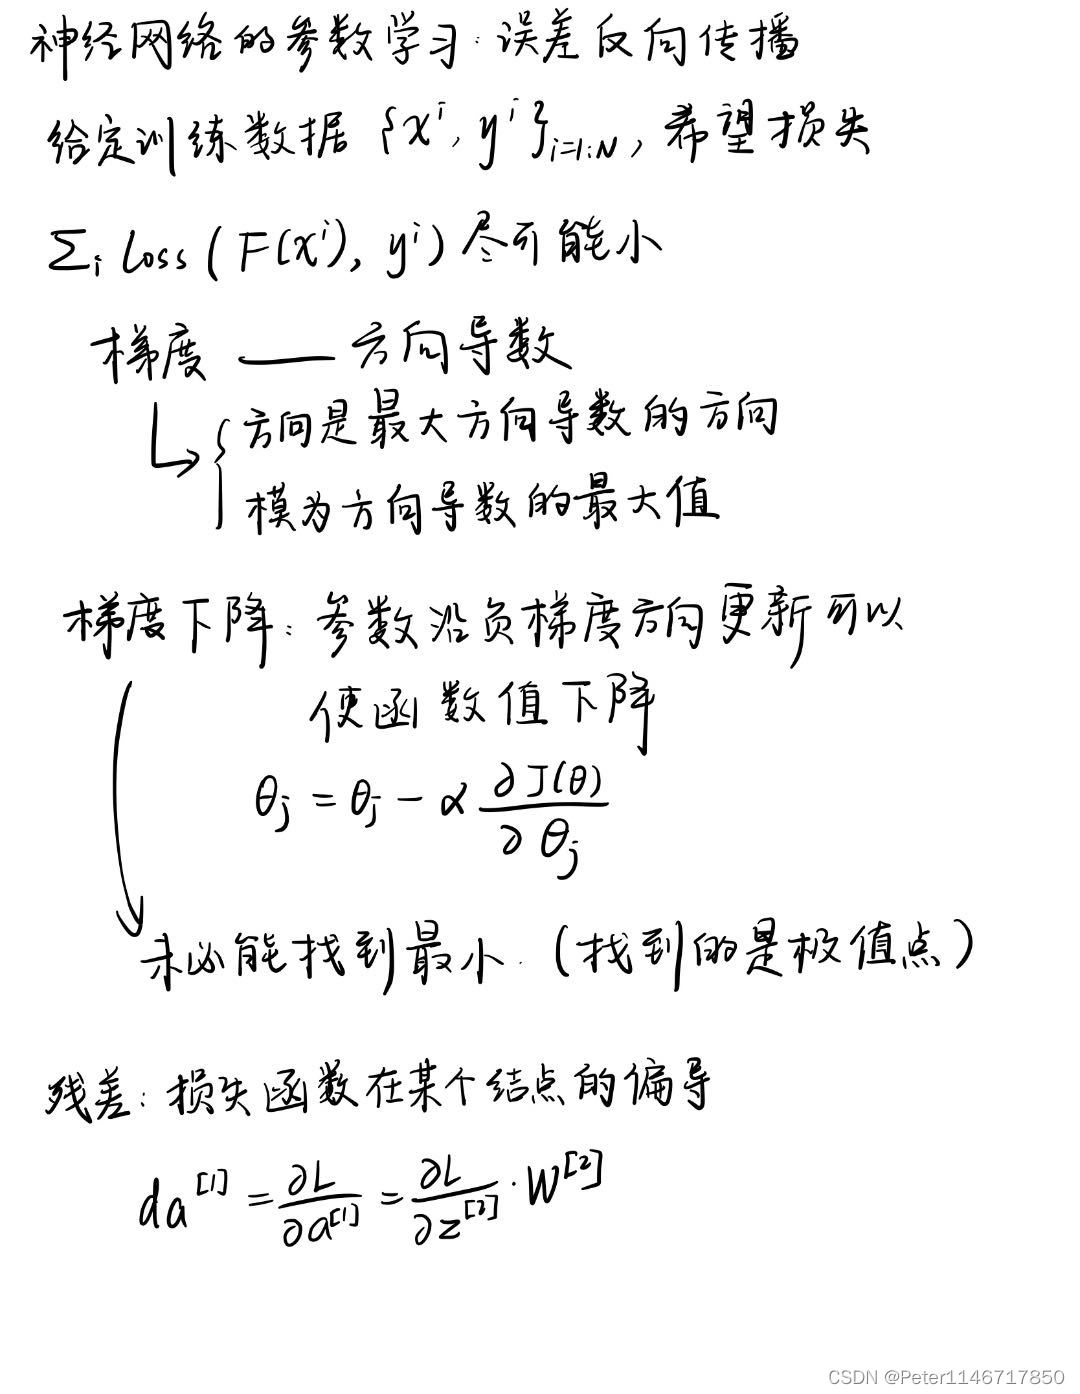 神经网络的参数学习:误差反向传播
给定训练数据 {xⁱ, yⁱ}ᵢ₌₁:N, 希望损失
Σᵢ Loss(F(xⁱ), yⁱ) 尽可能小
梯度 —— 方向导数
↳ { 方向是最大方向导数的方向
模为方向导数的最大值
梯度下降: 参数沿负梯度方向更新可以
使函数值下降
θⱼ = θⱼ - α ∂J(θ)/∂θⱼ
未必能找到最小.(找到的是极值点)
残差: 损失函数在某个结点的偏导
da^[1] = ∂L/∂a^[1] = ∂L/∂z^[2] · W^[2]
CSDN @Peter1146717850